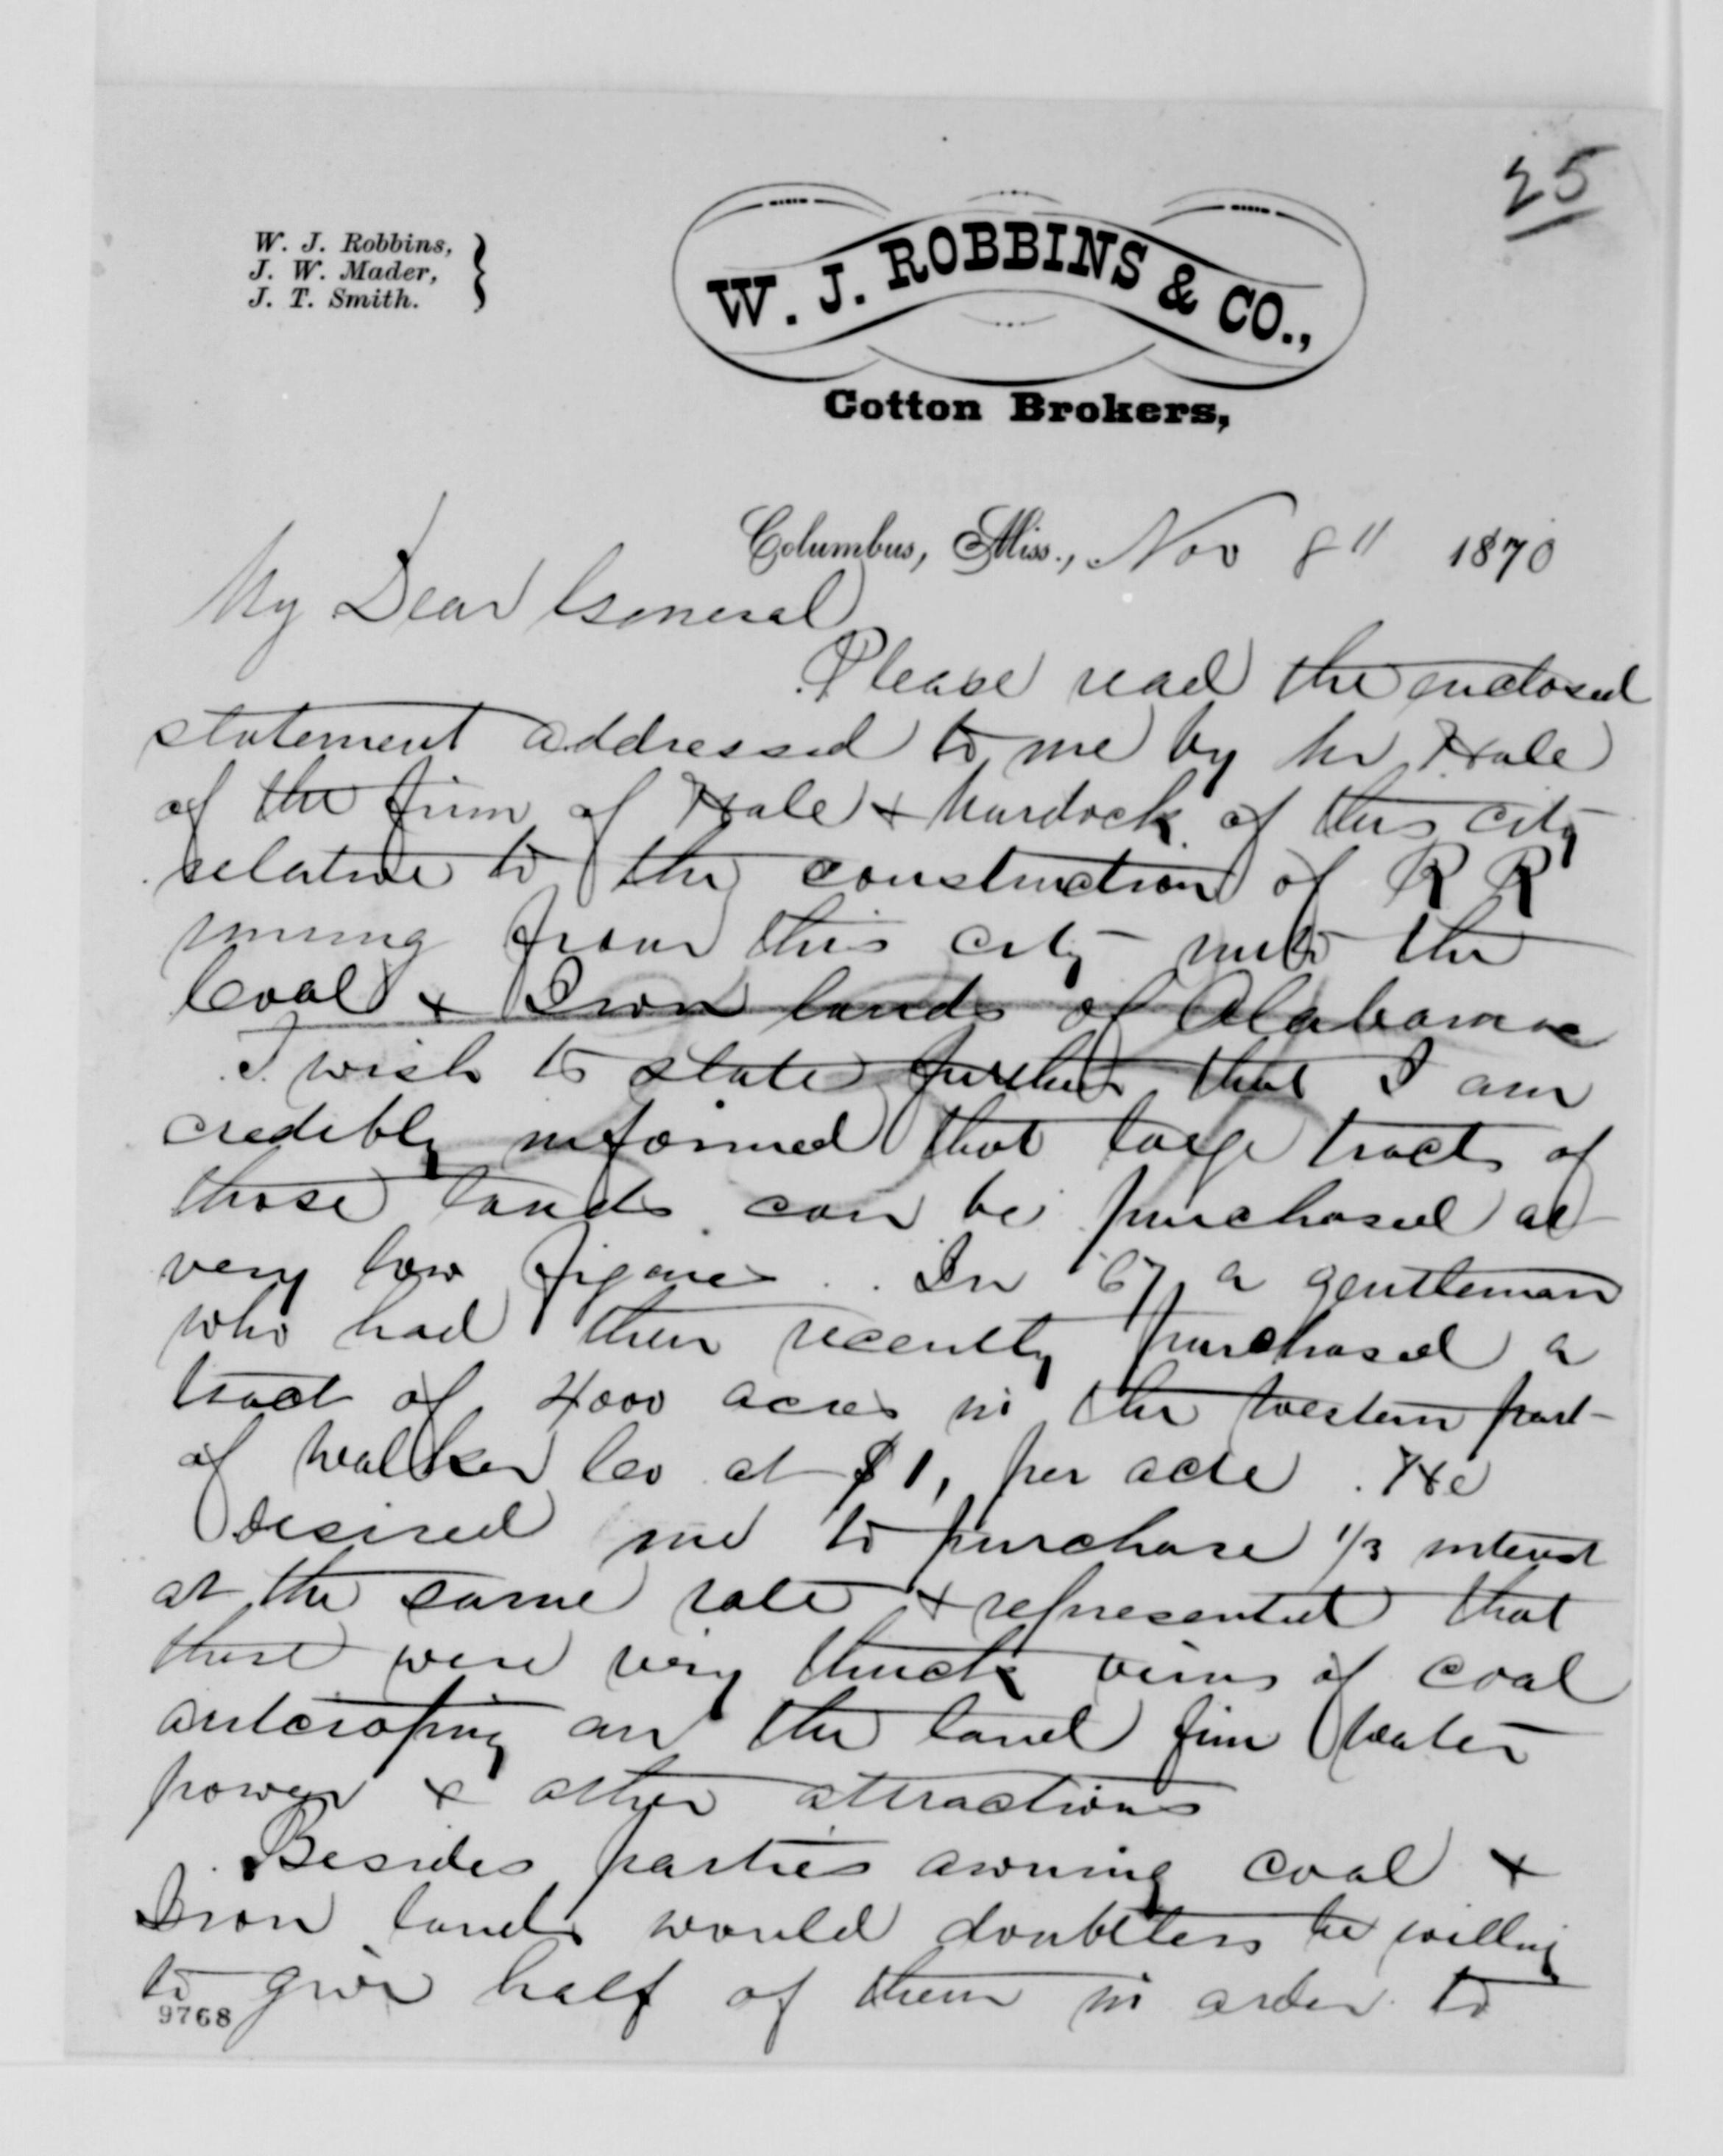 25
W. J. Robbins,
J. W. Mader,
J. T. Smith.
W. J. ROBBINS & CO.,
Cotton Brokers,
Columbus, Miss., Nov 8" 1870
My Dear General
Please read the enclosed
statement addressed to me by Mr Hale
of the firm of Hale & Murdock of this city
relative to the construction of R R
running from this city into the
Coal & Iron lands of Alabama
I wish to state further that I am
credibly informed that large tracts of
those lands can be purchased at
very low figures. In '67 a gentleman
who had then recently purchased a
tract of 4000 acres in the Western part
of Walker Co at $1, per acre. He
desired me to purchase 1/3 interest
at the same rate & represented that
there were very thick veins of coal
outcroping on the land fine water
power & other attractions
Besides parties owning coal &
Iron lands would doubtless be willing
to give half of them in order to
9768